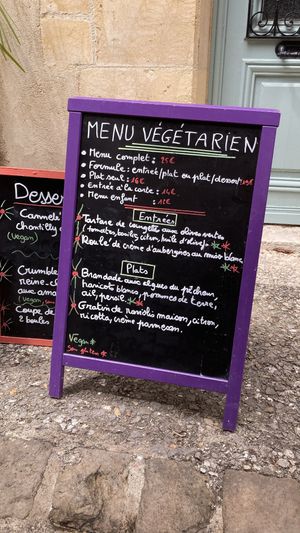 MENU VÉGÉTARIEN
• Menu complet : 25€
• Formule : entrée/plat ou plat/dessert: 19€
• Plat seul : 16€
• Entrée à la carte : 14€
• Menu enfant : 12€
Entrées
Tartare de courgette aux olives vertes
(tomates, basilic, citron, huile d'olive)
Roulé de crème d'aubergines au miso blanc
Plats
Brandade aux algues du pêcheur,
haricots blancs, pommes de terre,
ail, persil
Gratin de raviolis maison, citron,
ricotta, crème parmesan.
Vegan *
Sans gluten *
Desser
Cannelé
chantilly
(Vegan)
Crumble
reine-
aux ama
(Vegan
Coupe de
2 boules